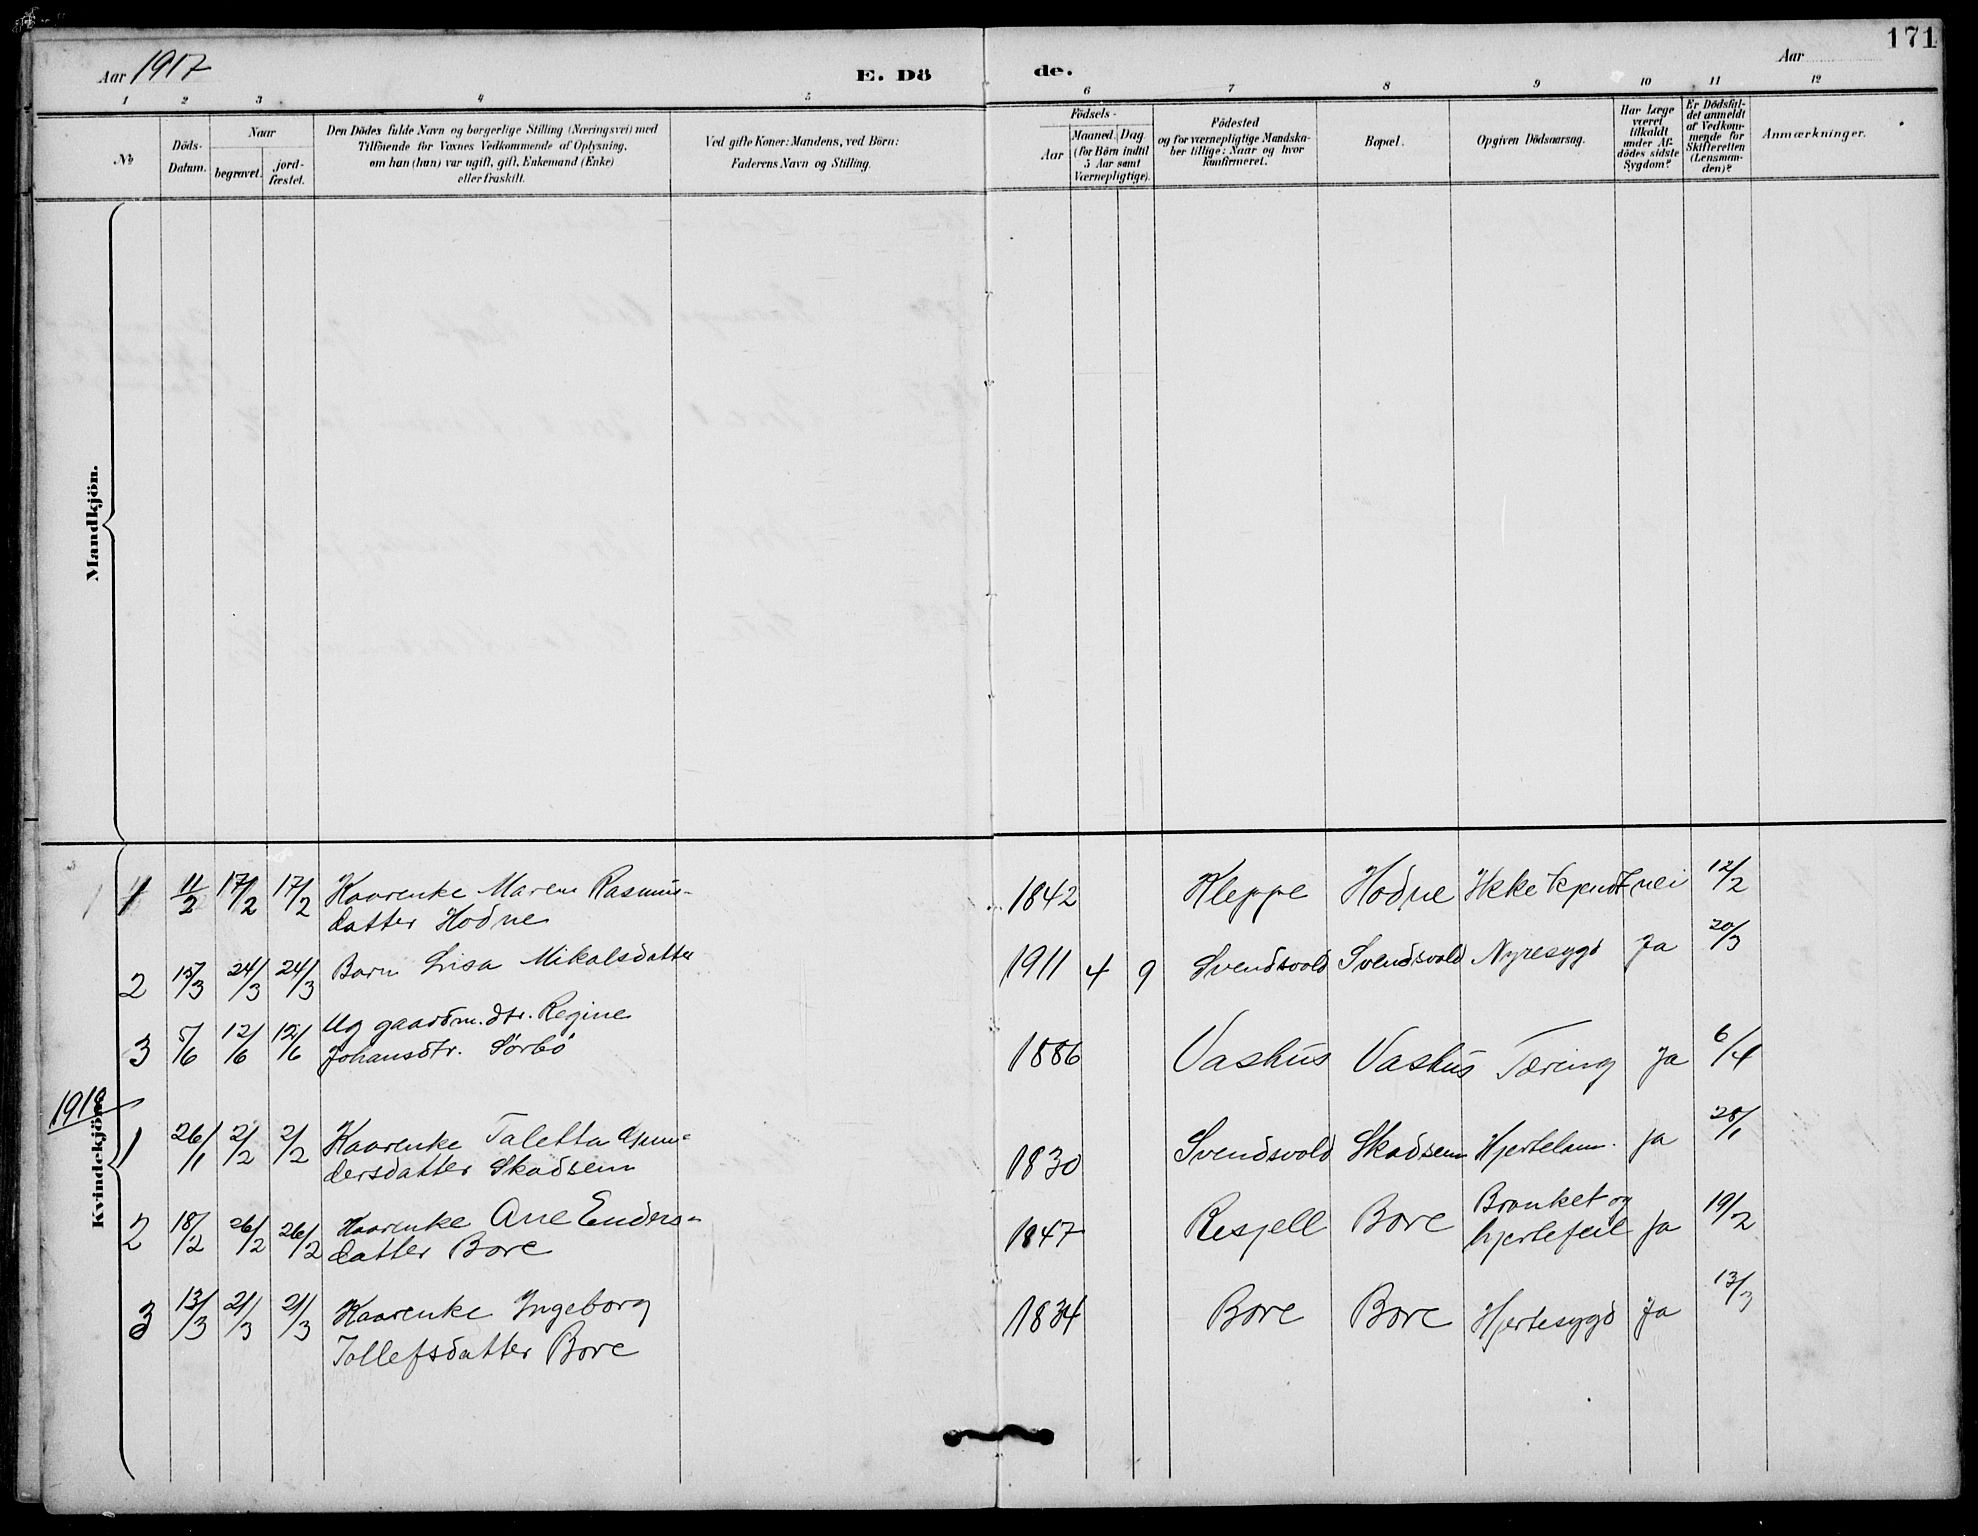 171
Aar 1917
E. Dö
de.
Aar
1 2 3 4 5 6 7 8 9 10 11 12
No
Döds-
Datum.
Naar
begravet.
jord-
fæstet.
Den Dödes fulde Navn og borgerlige Stilling (Næringsvei) med
Tilföiende for Voxnes Vedkommende af Oplysning,
om han (hun) var ugift, gift, Enkemand (Enke)
eller fraskilt.
Ved gifte Koner: Mandens, ved Börn:
Faderens Navn og Stilling.
Födsels-
Aar
Maaned.
Dag.
(for Börn indtil
5 Aar samt
Værnepligtige).
Födested
og for værnepligtige Mandska-
ber tillige: Naar og hvor
konfirmeret.
Bopæl.
Opgiven Dödsaarsag.
Har Læge
været
tilkaldt
under Af-
dödes sidste
Sygdom?
Er Dödsfal-
det anmeldt
af Vedkom-
mende for
Skifteretten
(Lensman-
den)?
Anmærkninger.
Mandkjön.
Kvindekjön.
1 11/2 17/2 17/2 Kaarenke Maren Rasmus- 1842 Kleppe Hodne Ikke kjendt nei 12/2
datter Hodne
2 15/3 24/3 24/3 Barn Lisa Mikalsdatter 1911 4 9 Svendsvold Svendsvold Nyresygd Ja 20/3
3 5/6 12/6 12/6 Ug gaardm.dtr. Regine
Johansdtr. Sörbö 1886 Vashus Vashus Tæring Ja 6/4
1918
1 26/1 2/2 2/2 Kaarenke Taletta
dersdatter Skadsem 1830 Svendsvold Skadsem Hjertelam. Ja 28/1
2 18/2 26/2 26/2 Kaarenke Ane Enders-
datter Bore 1847 Resjell Bore Bronket og
hjertefeil Ja 19/2
3 13/3 21/3 21/3 Kaarenke Ingeborg 1834 Bore Bore Hjertesygd Ja 13/3
Tollefsdatter Bore